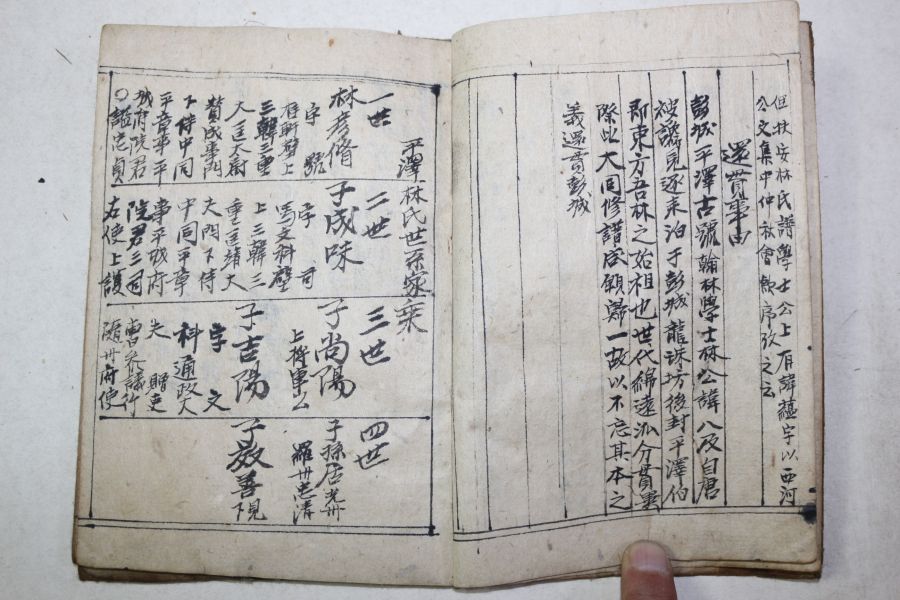 但扶安林氏譜學士公上有諱蘊字以西河
公文集中仲秋會飮序攷之云
還貫事由
彭城平澤古號翰林學士林公諱八及自唐
被讒見逐來泊于彭城龍珠坊後封平澤伯
卽東方吾林之始祖也世代綿遠派分貫
際此大同修譜咸願歸一故以不忘其本之
義還貫彭城
平澤林氏世系家乘
一世
林彦脩
字 號
軒壁上
三韓三重
大匡太尉
贊成事門
下侍中同
平章事平
城府院君
○謚忠貞
二世
子成味
字 司
馬文科壁
上三韓三
重匡靖大
夫門下侍
中同平章
事平城府
院君三司
左使上護
三世
子尚陽
上將軍公
子吉陽
字 文
科通政大
夫 贈吏
曹參議行
隨州府使
四世
子孫居光州
羅州忠清
子 善下見